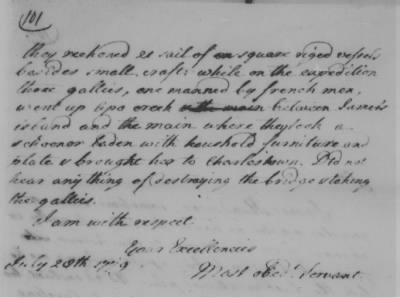 101
they reckoned 21 sail of square riged vessels
besides small crafts while on the expedition
three gallies, one manned by french men,
went up a creek between James's
island and the main where they took a
schooner laden with houshold furniture and
plate & brought her to Charlestown. I do not
hear any thing of destroying the bridge & taking
the gallies.
I am with respect
Your Excellencies
Most Obedt. Servant
July 28th 1779